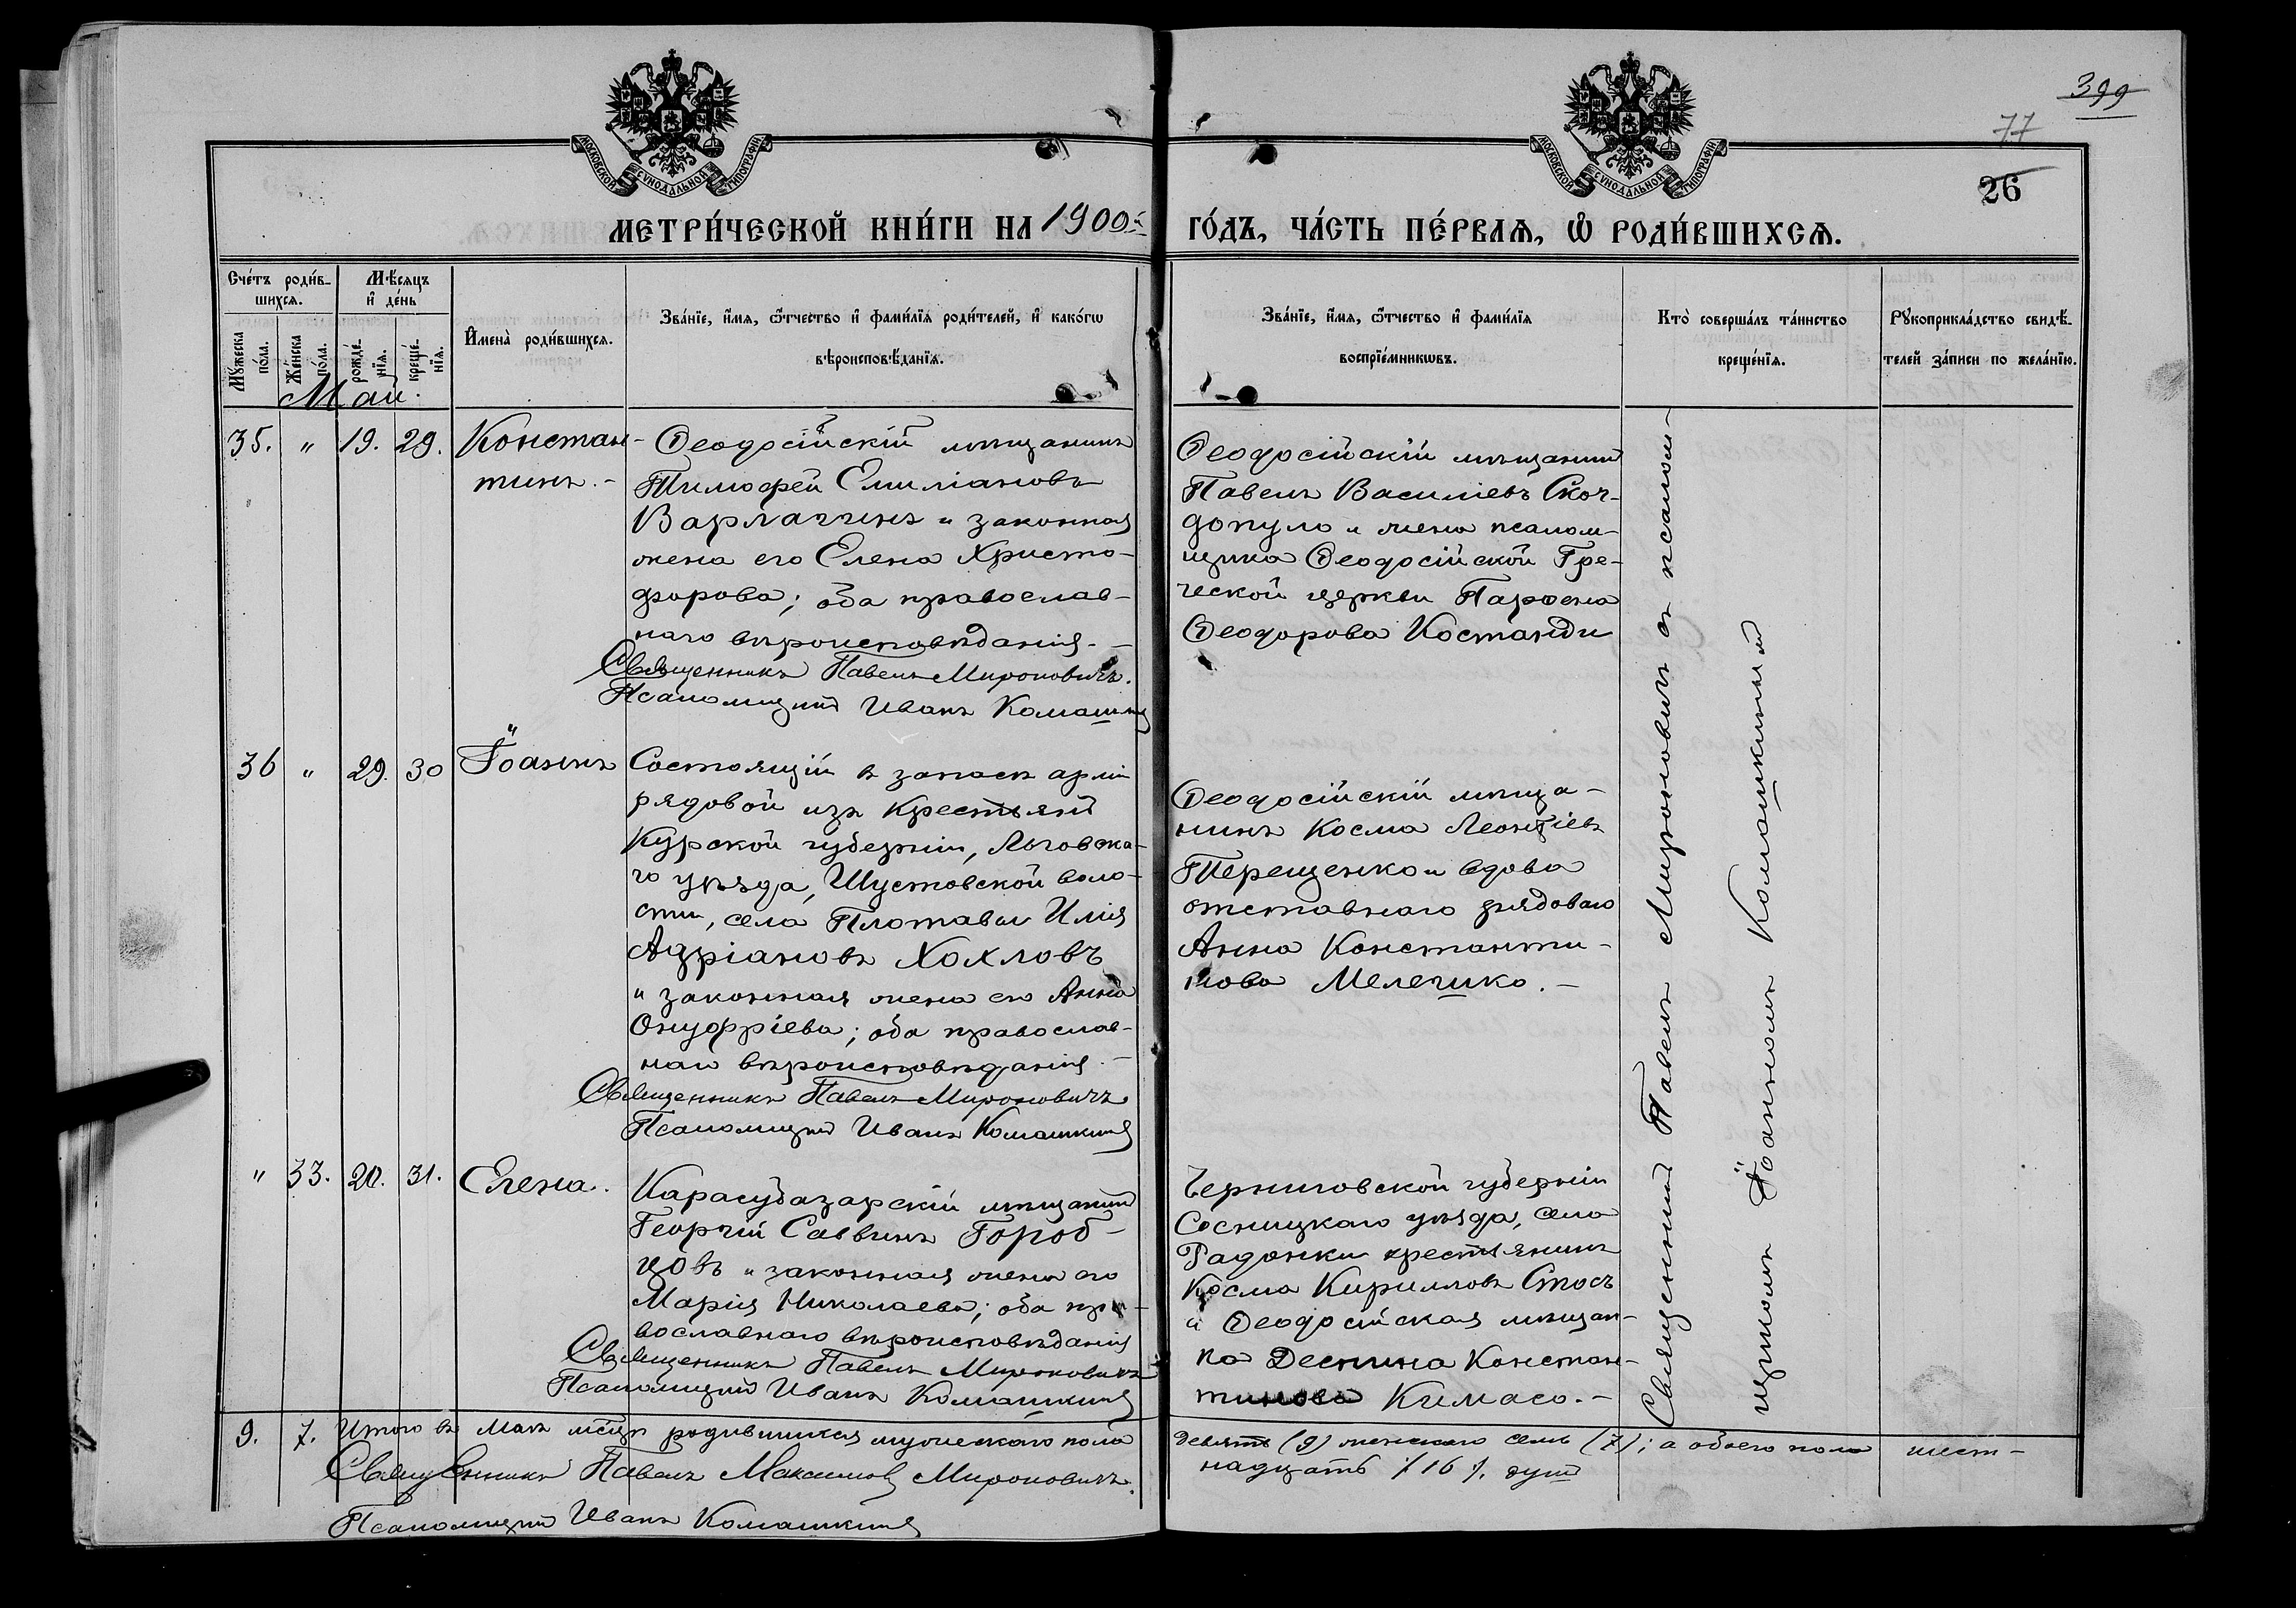 399
77
26
МОСКОВСКОЙ СУНОДАЛЬНОЙ ТИПОГРАФІИ.
МОСКОВСКОЙ СУНОДАЛЬНОЙ ТИПОГРАФІИ.
МЕТРИ́ЧЕСКОЙ КНИ́ГИ НА 1900й ГО́ДЪ, ЧА́СТЬ ПЕ́РВАѦ, Ѡ РОДИ́ВШИХСѦ.
Сче́тъ роди́в-
шихсѧ.
Мꙋ́жеска
по́ла.
Же́нска
по́ла.
Мѣ́сѧцъ
и҆ де́нь
рожде́-
нїѧ.
креще́-
нїѧ.
И҆мена̀ роди́вшихсѧ.
Зва́нїе, и҆́мѧ, ѻ҆́тчество и҆ фами́лїѧ роди́телей, и҆ како́гѡ
вѣроисповѣ́данїѧ.
Зва́нїе, и҆́мѧ, ѻ҆́тчество и҆ фами́лїѧ
воспрїе́мникѡвъ.
Кто̀ соверша́лъ та́инство
креще́нїѧ.
Рꙋкоприкла́дство свидѣ́-
телей за́писи по жела́нїю.
Май.
35. " 19. 29. Констан-
тинъ.-
Ѳеодосійскій мѣщанинъ
Тимофей Емиліановъ
Варлагинъ и законная
жена его Елена Христо-
форова; оба православ-
наго вѣроисповѣданія.-
Священникъ Павелъ Мироновичъ.
Псаломщикъ Иванъ Комашкинъ
Ѳеодосійскій мѣщанинъ
Павелъ Василіевъ Скор-
допуло и жена псалом-
щика Ѳеодосійской Гре-
ческой церкви Парѳена
Ѳеодорова Костанди
36 " 29. 30 Іоаннъ
Состоящій въ запасѣ арміи
рядовой изъ крестьянъ
Курской губерніи, Льговска-
го уѣзда, Шустовской воло-
сти, села Плотавы Илія
Адріановъ Хохловъ
и законная жена его Анна
Онуфріева; оба православ-
наго вѣроисповѣданія.-
Священникъ Павелъ Мироновичъ
Псаломщикъ Иванъ Комашкинъ
Ѳеодосійскій мѣща-
нинъ Косма Леонтіевъ
Терещенко и вдова
отставнаго рядоваго
Анна Константи-
нова Мелешко.-
" 33. 20. 31. Елена.
Карасубазарскій мѣщанинъ
Георгій Саввинъ Город-
цовъ и законная жена его
Марія Николаева; оба пра-
вославнаго вѣроисповѣданія
Священникъ Павелъ Мироновичъ
Псаломщикъ Иванъ Комашкинъ
Черниговской губерніи
Сосницкаго уѣзда, села
Радонки крестьянинъ
Косма Кирилловъ Стось
и Ѳеодосійская мѣщан-
ка Деспина Констан-
тинова Кимасо.-
Священникъ Павелъ Мироновичъ съ псалом-
щикомъ Іоанномъ Комашкинымъ
9. 7. Итого въ маѣ мѣсяцѣ родившихся мужескаго пола девять (9) женскаго семь (7); а обоего пола шест-
надцать /16/. душъ
Священникъ Павелъ Максимовъ Мироновичъ.
Псаломщикъ Иванъ Комашкинъ